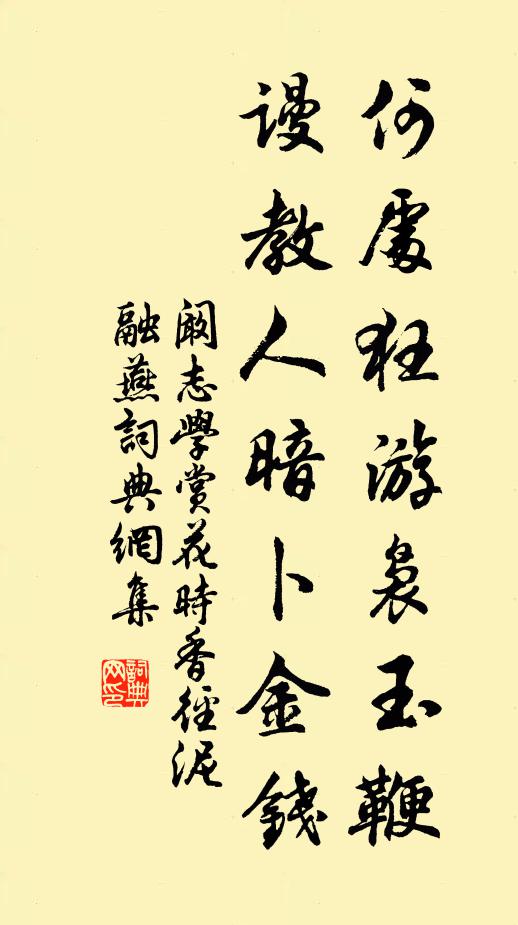 何處狂游裊玉鞭
謾教人暗卜金錢
闞志學賞花時香徑泥
融燕詞典網集
詞典网印